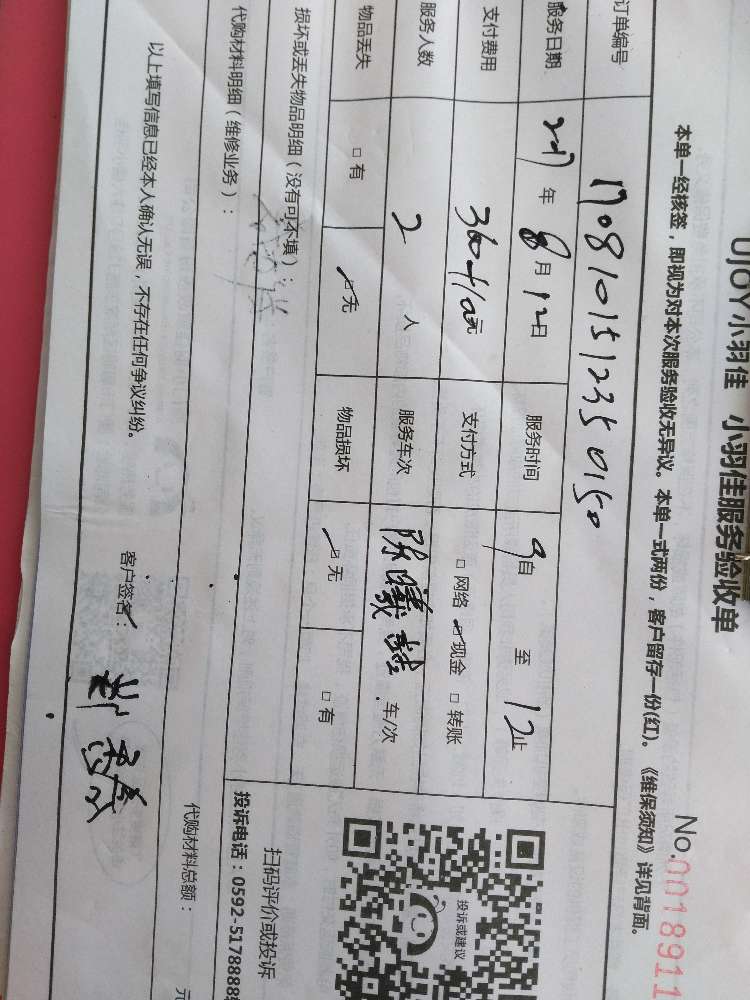 UJOY小羽佳 小羽佳服务验收单
No.0018911
本单一经核签，即视为对本次服务验收无异议。本单一式两份，客户留存一份(红)。《维保须知》详见背面。
订单编号 170810151235 0150
服务日期 2017年8月12日 服务时间 9自 至 12止
支付费用 360+10元 支付方式 □网络 ☑现金 □转账
服务人数 2人 服务车次 车/次
物品丢失 □有 ☑无 物品损坏 ☑无 □有
损坏或丢失物品明细（没有可不填）：
代购材料明细（维修业务）：
代购材料总额： 元
以上填写信息已经本人确认无误，不存在任何争议纠纷。
客户签名：
投诉或建议
扫码评价或投诉
投诉电话：0592-5178888